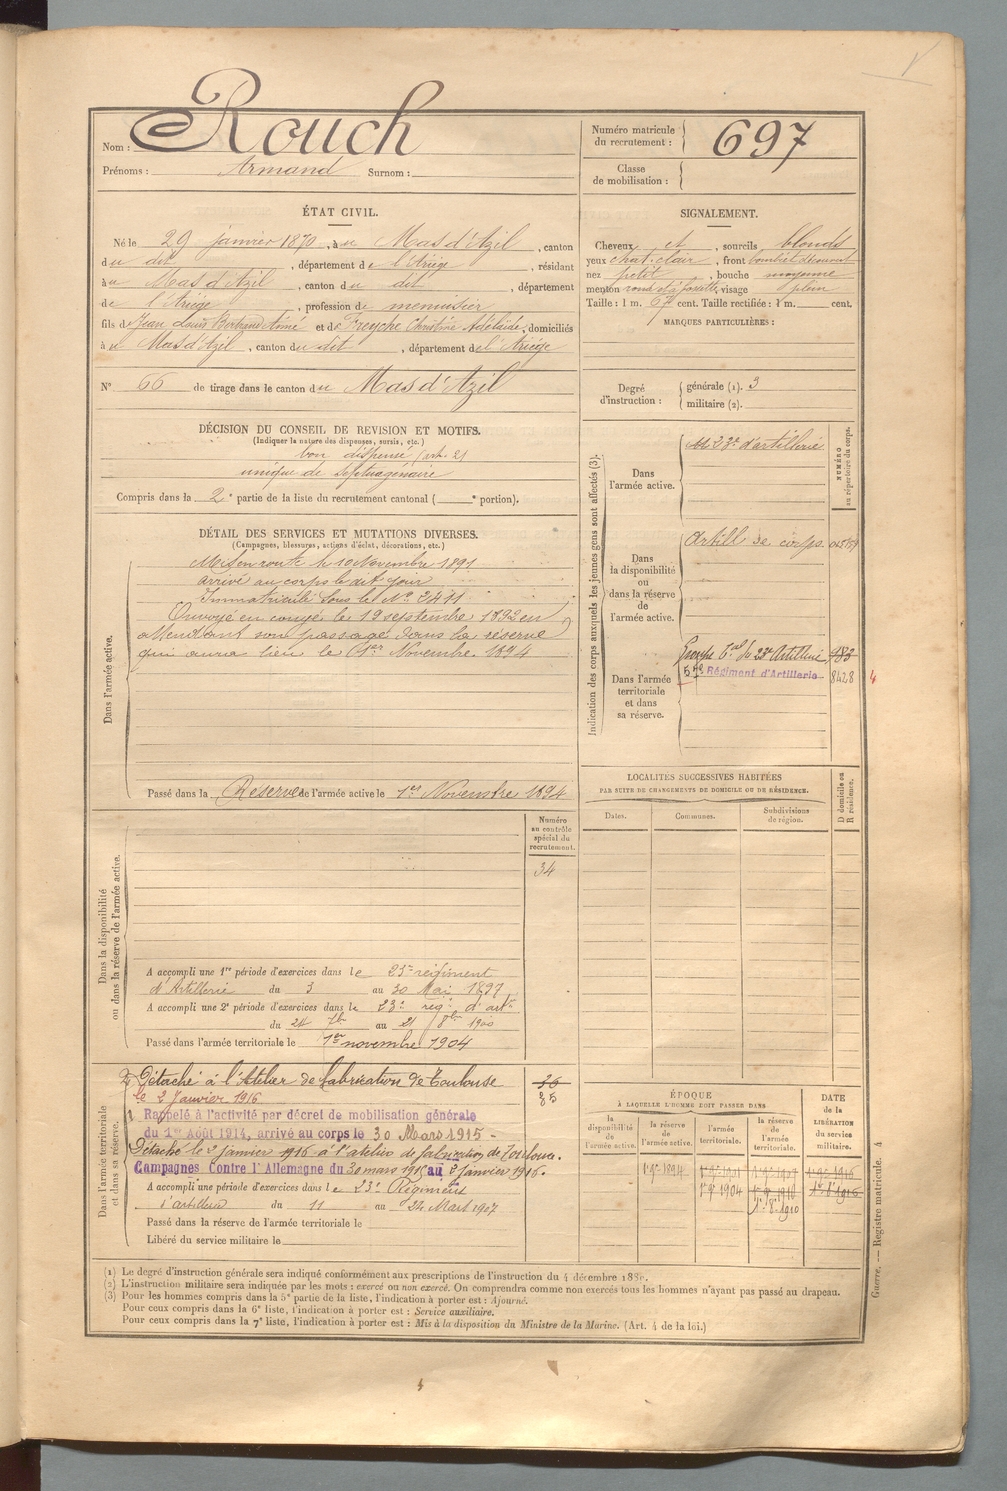 Rouch
Nom :
Prénoms : Armand Surnom :
Numéro matricule du recrutement : 697
Classe de mobilisation :
ÉTAT CIVIL.
Né le 29 janvier 1870, à u Mas d'Azil, canton
du dit, département de l'Ariège, résidant
à u Mas d'Azil, canton du dit, département
de l'Ariège, profession de menuisier
fils de Jean Louis Bertrand Aimé et de Freyche Christine Adélaïde, domiciliés
à u Mas d'Azil, canton du dit, département de l'Ariège
N° 66 de tirage dans le canton du Mas d'Azil
SIGNALEMENT.
Cheveux et, sourcils blonds
yeux chat. clair, front bombé et découvert
nez petit, bouche moyenne
menton rond et à fossette, visage plein
Taille : 1 m. 67 cent. Taille rectifiée : 1 m. cent.
MARQUES PARTICULIÈRES :
Degré d'instruction : générale (1). 3
militaire (2).
DÉCISION DU CONSEIL DE REVISION ET MOTIFS.
(Indiquer la nature des dispenses, sursis, etc.)
bon dispensé (art. 21
unique de septuagénaire
Compris dans la 2e partie de la liste du recrutement cantonal ( e portion).
DÉTAIL DES SERVICES ET MUTATIONS DIVERSES.
(Campagnes, blessures, actions d'éclat, décorations, etc.)
Dans l'armée active.
Mis en route le 10 Novembre 1891
arrivé au corps le dit jour
Immatriculé sous le N° 2411
Envoyé en congé le 19 septembre 1892 en
attendant son passage dans la réserve
qui aura lieu le 1er Novembre 1894
Passé dans la Réserve de l'armée active le 1er Novembre 1894
Indication des corps auxquels les jeunes gens sont affectés (3).
NUMÉRO au répertoire du corps.
Dans l'armée active.
au 23e d'artillerie
Dans la disponibilité ou dans la réserve de l'armée active.
Artill de corps
Dans l'armée territoriale et dans sa réserve.
Groupe tal du 23e Artillerie 983
57e Régiment d'Artillerie 8428 4
LOCALITÉS SUCCESSIVES HABITÉES
PAR SUITE DE CHANGEMENTS DE DOMICILE OU DE RÉSIDENCE.
D domicile ou R résidence.
Dates. Communes. Subdivisions de région.
Dans la disponibilité ou dans la réserve de l'armée active.
Numéro au contrôle spécial du recrutement.
34
A accompli une 1re période d'exercices dans le 23e régiment
d'Artillerie du 3 au 30 Mai 1897
A accompli une 2e période d'exercices dans le 23e rég. d'artie
du 24 7bre au 21 8bre 1900
Passé dans l'armée territoriale le 1er novembre 1904
Dans l'armée territoriale et dans sa réserve.
2 Détaché à l'Atelier de fabrication de Toulouse
le 2 Janvier 1916
36
85
1 Rappelé à l'activité par décret de mobilisation générale
du 1er Août 1914, arrivé au corps le 30 Mars 1915 -
Détaché le 2 janvier 1916 à l'atelier de fabrication de Toulouse.
Campagnes Contre l'Allemagne du 30 mars 1915 au 2 janvier 1916.
A accompli une période d'exercices dans le 23e Régiment
d'artillerie du 11 au 24 Mars 1907
Passé dans la réserve de l'armée territoriale le
Libéré du service militaire le
ÉPOQUE
À LAQUELLE L'HOMME DOIT PASSER DANS
la disponibilité de l'armée active.
la réserve de l'armée active.
l'armée territoriale.
la réserve de l'armée territoriale.
DATE de la LIBÉRATION du service militaire.
1er 9bre 1894
1er 9bre 1904
1er 8bre 1910
(1) Le degré d'instruction générale sera indiqué conformément aux prescriptions de l'instruction du 4 décembre 1889.
(2) L'instruction militaire sera indiquée par les mots : exercé ou non exercé. On comprendra comme non exercés tous les hommes n'ayant pas passé au drapeau.
(3) Pour les hommes compris dans la 5e partie de la liste, l'indication à porter est : Ajourné.
Pour ceux compris dans la 6e liste, l'indication à porter est : Service auxiliaire.
Pour ceux compris dans la 7e liste, l'indication à porter est : Mis à la disposition du Ministre de la Marine. (Art. 4 de la loi.)
Guerre. — Registre matricule. 4